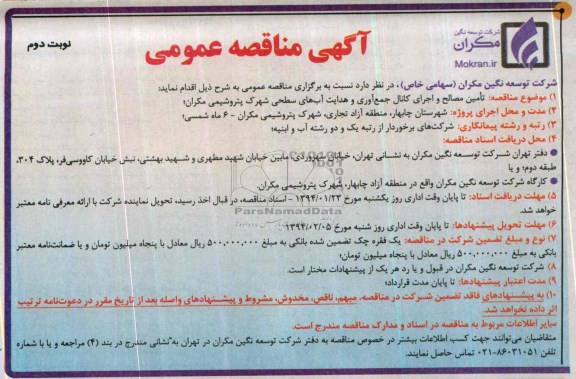 شرکت توسعه نگین
مکران
Mokran.ir
آگهی مناقصه عمومی
نوبت دوم
شرکت توسعه نگین مکران (سهامی خاص)، در نظر دارد نسبت به برگزاری مناقصه عمومی به شرح ذیل اقدام نماید:
۱) موضوع مناقصه: تأمین مصالح و اجرای کانال جمع‌آوری و هدایت آب‌های سطحی شهرک پتروشیمی مکران؛
۲) مدت و محل اجرای پروژه: شهرستان چابهار، منطقه آزاد تجاری، شهرک پتروشیمی مکران - ۶ ماه شمسی؛
۳) رتبه و رشته پیمانکاری: شرکت‌های برخوردار از رتبه یک و دو رشته آب و ابنیه؛
۴) محل دریافت اسناد مناقصه:
● دفتر تهران شرکت توسعه نگین مکران به نشانی تهران، خیابان سهروردی، مابین خیابان شهید مطهری و شهید بهشتی، نبش خیابان کاووسی‌فر، پلاک ۳۰۴،
طبقه دوم؛ و یا
● کارگاه شرکت توسعه نگین مکران واقع در منطقه آزاد چابهار، شهرک پتروشیمی مکران.
۵) مهلت دریافت اسناد: تا پایان وقت اداری روز یکشنبه مورخ ۱۳۹۴/۰۱/۲۳ - اسناد مناقصه، در قبال اخذ رسید، تحویل نماینده شرکت با ارائه معرفی نامه معتبر
خواهد شد.
۶) مهلت تحویل پیشنهادها: تا پایان وقت اداری روز شنبه مورخ ۱۳۹۴/۰۲/۰۵.
۷) نوع و مبلغ تضمین شرکت در مناقصه: یک فقره چک تضمین شده بانکی به مبلغ ۵۰۰,۰۰۰,۰۰۰ ریال معادل با پنجاه میلیون تومان و یا ضمانت‌نامه معتبر
بانکی به مبلغ ۵۰۰,۰۰۰,۰۰۰ ریال معادل با پنجاه میلیون تومان؛
۸) شرکت توسعه نگین مکران در قبول و یا رد هر یک از پیشنهادات مختار است.
۹) مدت اعتبار پیشنهادها: تا پایان مدت قرارداد؛
۱۰) به پیشنهادهای فاقد تضمین شرکت در مناقصه، مبهم، ناقص، مخدوش، مشروط و پیشنهادهای واصله بعد از تاریخ مقرر در دعوت‌نامه ترتیب
اثر داده نخواهد شد.
سایر اطلاعات مربوط به مناقصه در اسناد و مدارک مناقصه مندرج است.
متقاضیان می‌توانند جهت کسب اطلاعات بیشتر در خصوص مناقصه به دفتر شرکت توسعه نگین مکران در تهران به نشانی مندرج در بند (۴) مراجعه و یا با شماره
۰۲۱-۸۶۰۳۱۰۵۱ تماس حاصل نمایند.
ParsNamadData